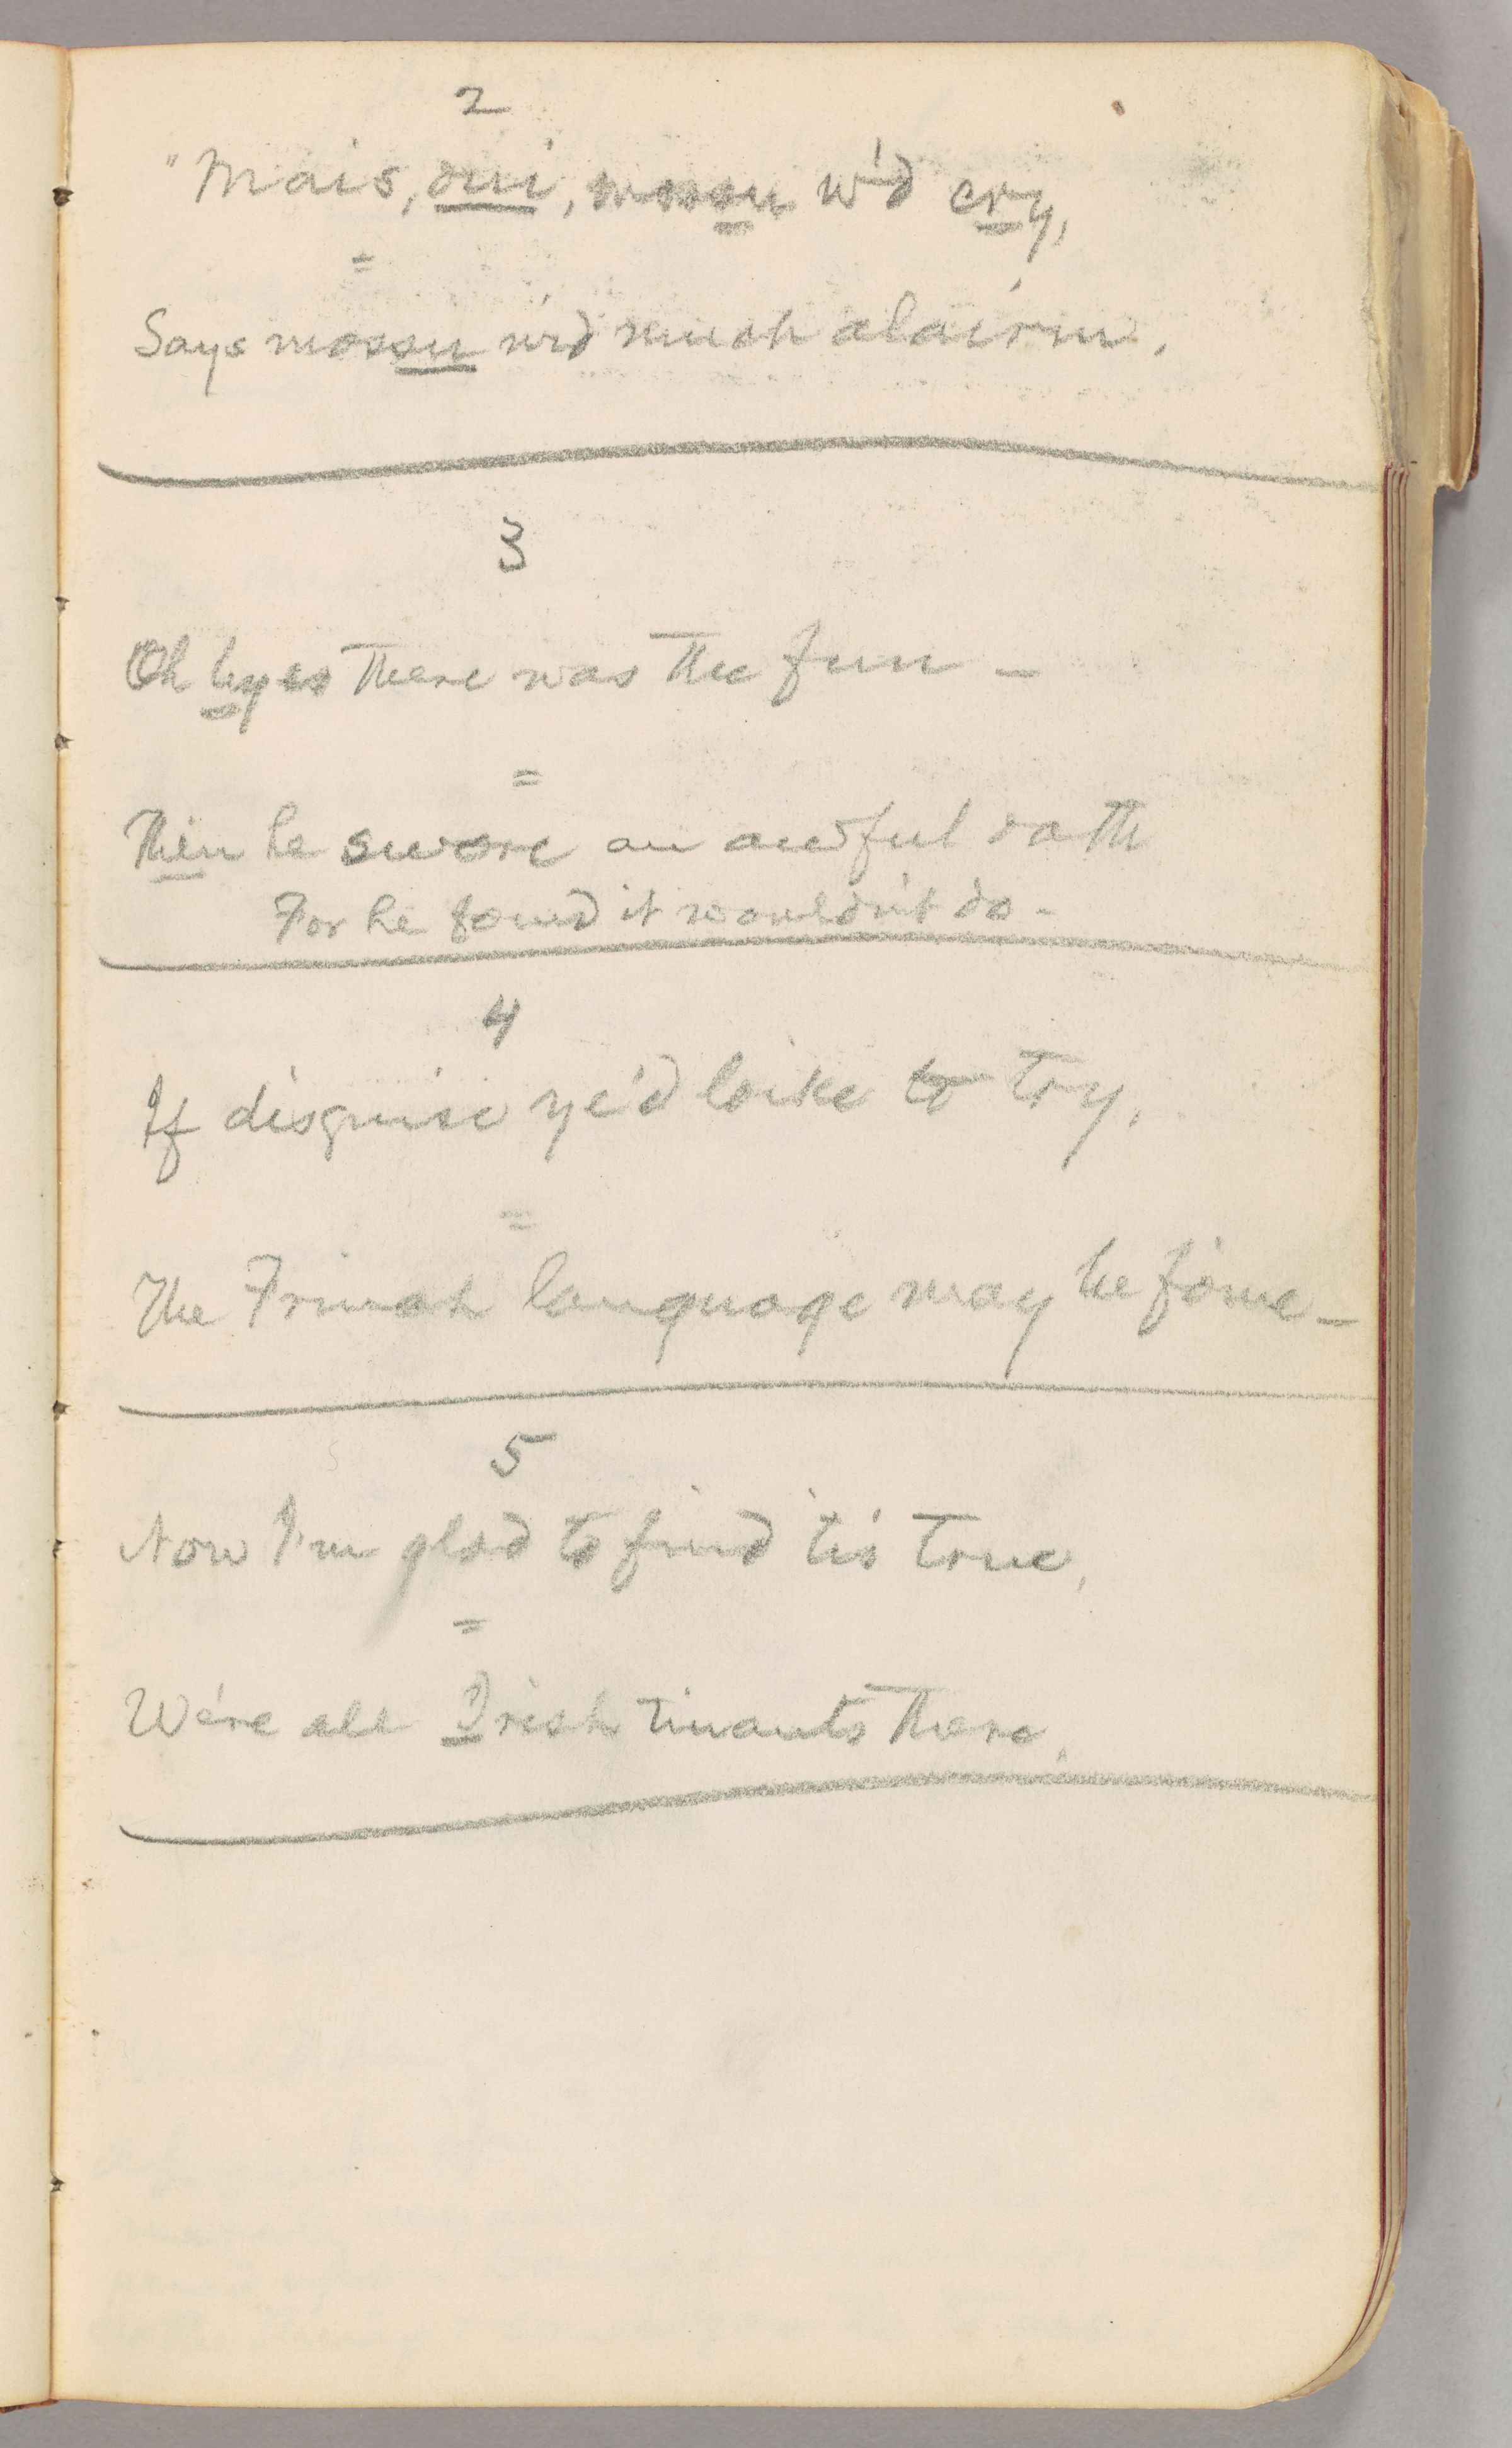 2
"Mais, oui, mossu w'd cry,
=
Says mossu wid much alairm.
3
Oh hyes there was the fun –
=
Thin he swore an awful oath
For he found it wouldn't do –
4
If disguise ye'd loike to try,
=
The Frinch language may be foine –
5
Now I'm glad to find 'tis true,
=
We're all Irish tinants there.